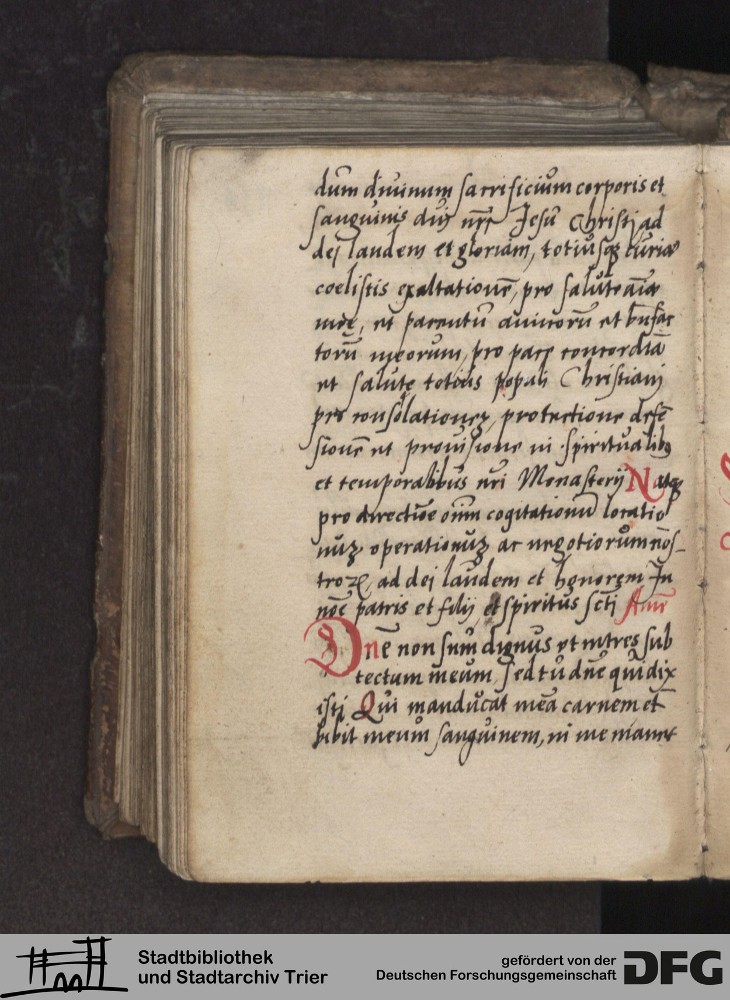 dum diuinum sacrificium corporis et
sanguinis dnj nrj Jesu Christj ad
dej laudem et gloriam, totiusqȝ curiæ
coelistis exaltationē, pro salute aīæ
meæ, et parentū amicorū et bn̄fac
torū meorum, pro pace concordiā
et salute totius populi Christianj
pro consolationeȝ, protectione defē
sionē et prouisione in spiritualibꝯ
et temporalibus nrī Monasterij Natqȝ
pro directiōe oīm cogitationū locatio
nuȝ operationuȝ ac negotiorūm nōs-
troꝝ, ad dej laudem et honorem In
noīe patris et filij et spiritus sctī Amē
Dnē non sum dignus vt intres sub
tectum meum, sed tu dnē qui dix
istj Qui manducat meā carnem et
bibit meum sanguinem, in me manet
Stadtbibliothek
und Stadtarchiv Trier
gefördert von der
Deutschen Forschungsgemeinschaft
DFG